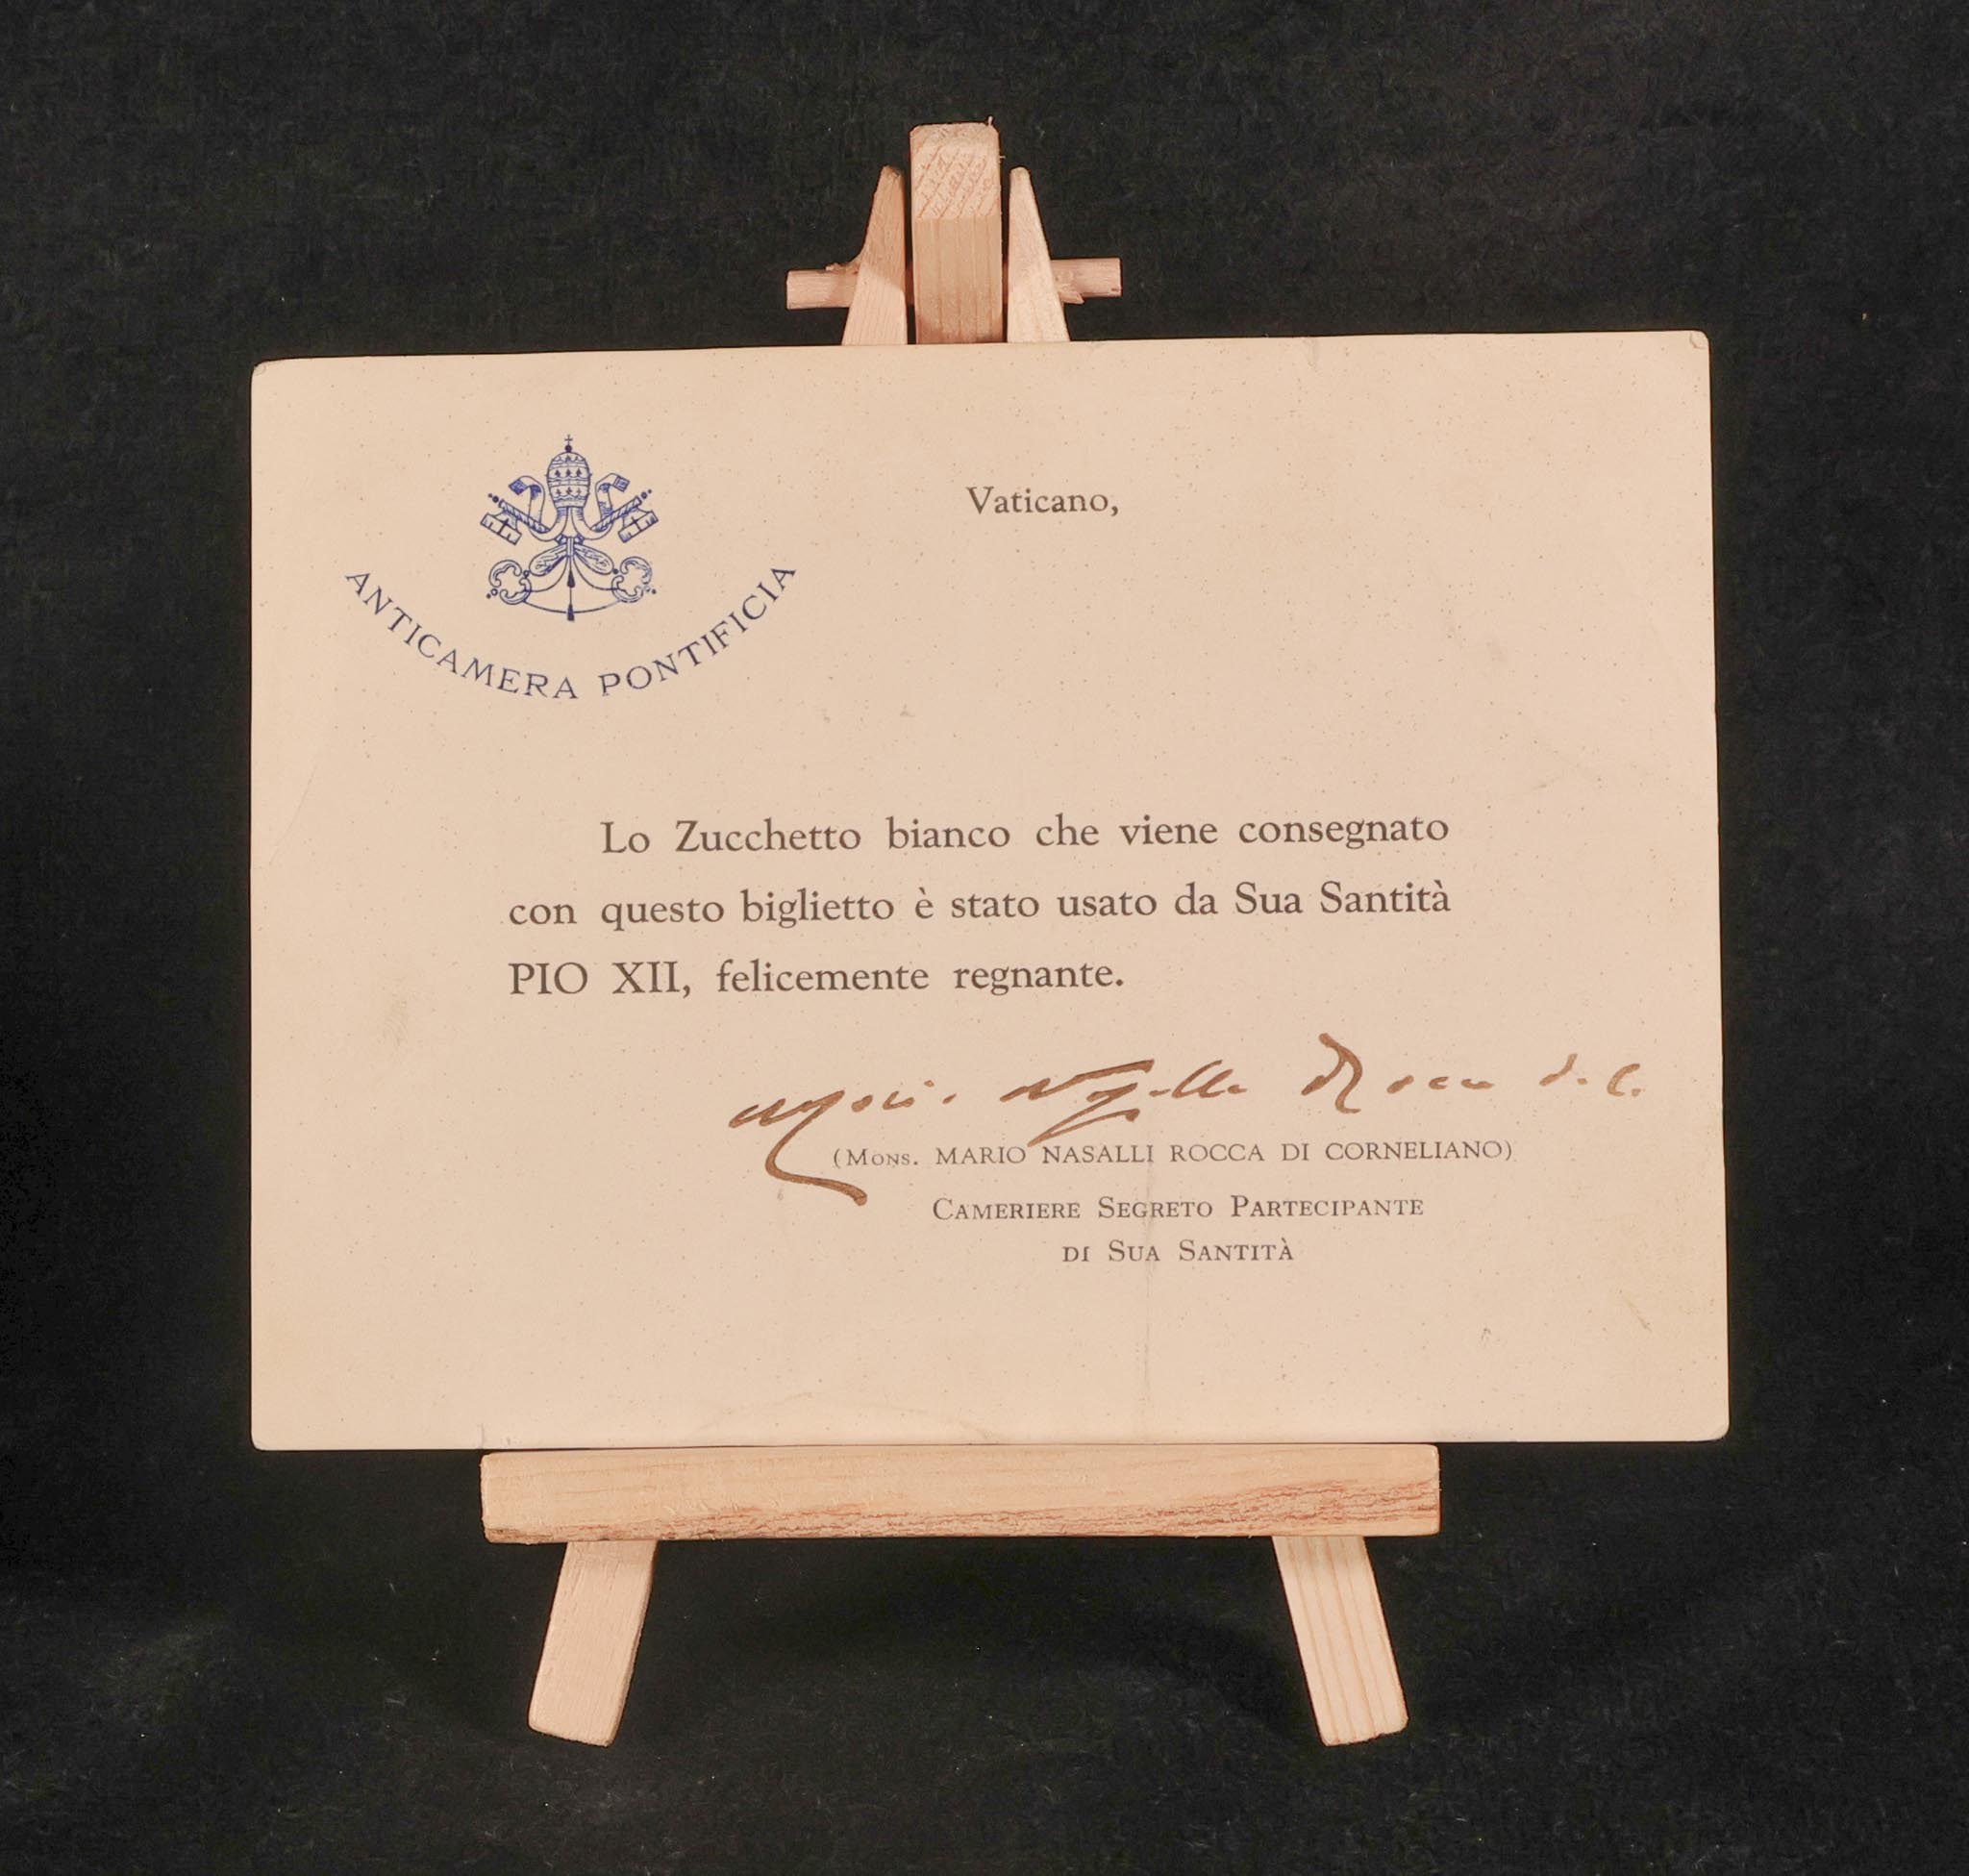 ANTICAMERA PONTIFICIA
Vaticano,
Lo Zucchetto bianco che viene consegnato
con questo biglietto è stato usato da Sua Santità
PIO XII, felicemente regnante.
Mario Nasalli Rocca d. C.
(Mons. MARIO NASALLI ROCCA DI CORNELIANO)
Cameriere Segreto Partecipante
di Sua Santità